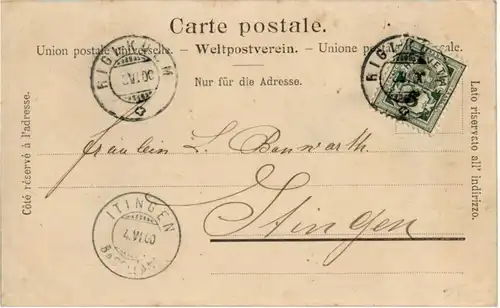 Carte postale.
Union postale universelle. – Weltpostverein. – Unione postale universale.
Nur für die Adresse.
RIGI-KULM
VI.00
RIGI
HELVETIA
Côté réservé à l'adresse.
Lato riservato all' indirizzo.
Fräulein L. Bannwarth.
Itingen
ITINGEN
4.VI.00